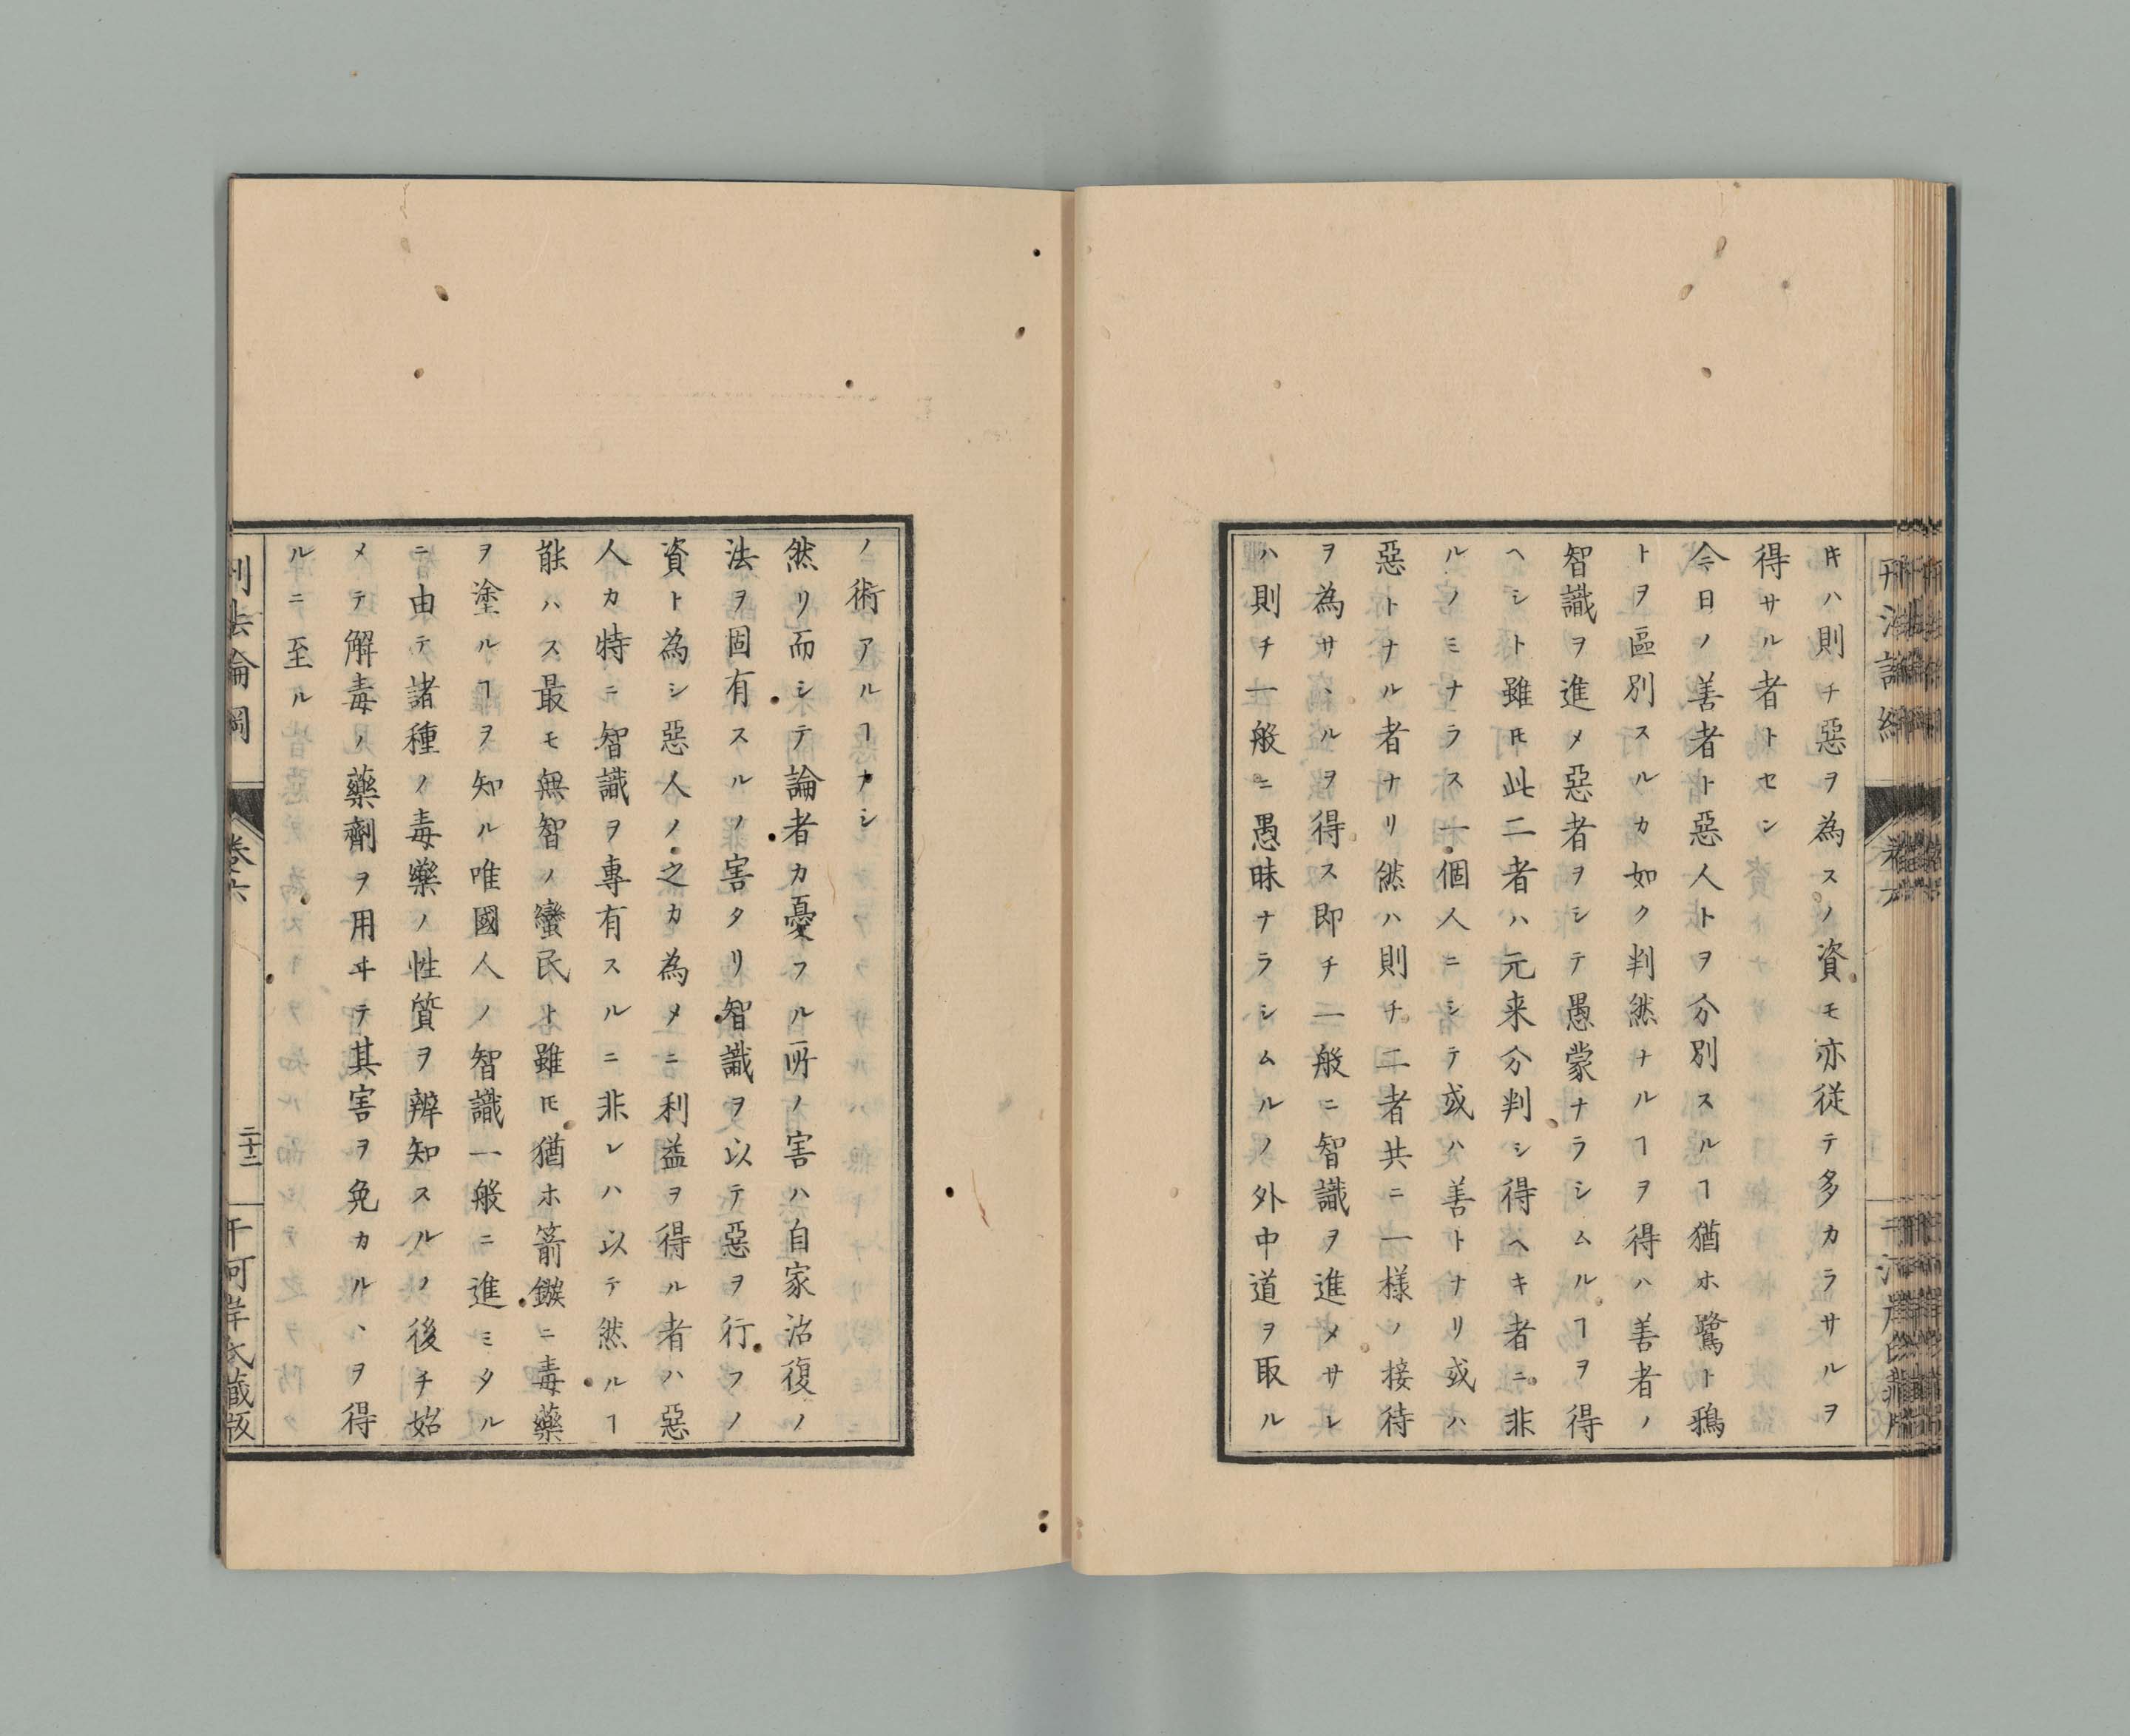 キハ則チ惡ヲ為スノ資モ亦従テ多カラサルヲ
得サル者トセン
今日ノ善者ト惡人トヲ分別スルヿ猶ホ鷺ト鴉
トヲ區別スルカ如ク判然ナルヿヲ得ハ善者ノ
智識ヲ進メ惡者ヲシテ愚蒙ナラシムルヿヲ得
ヘシト雖𪜈此二者ハ元来分判シ得ヘキ者ニ非
ルノミナラス一個人ニシテ或ハ善トナリ或ハ
惡トナル者ナリ然ハ則チ二者共ニ一様ノ接待
ヲ為サヽルヲ得ス即チ一般ニ智識ヲ進メサレ
ハ則チ一般ニ愚昧ナラシムルノ外中道ヲ取ル
ノ術アルヿナシ
然リ而シテ論者カ憂フル所ノ害ハ自家治復ノ
法ヲ固有スルノ害タリ智識ヲ以テ惡ヲ行フノ
資ト為シ惡人ノ之カ為メニ利益ヲ得ル者ハ惡
人カ特ニ智識ヲ專有スルニ非レハ以テ然ルヿ
能ハス最モ無智ノ蠻民ト雖𪜈猶ホ箭鏃ニ毒藥
ヲ塗ルヿヲ知ル唯國人ノ智識一般ニ進ミタル
ニ由テ諸種ノ毒藥ノ性質ヲ辨知スルノ後チ始
メテ解毒ノ藥劑ヲ用ヰテ其害ヲ免カルヽヲ得
ルニ至ル
刑法論綱
卷六
二十二
干河岸氏藏版